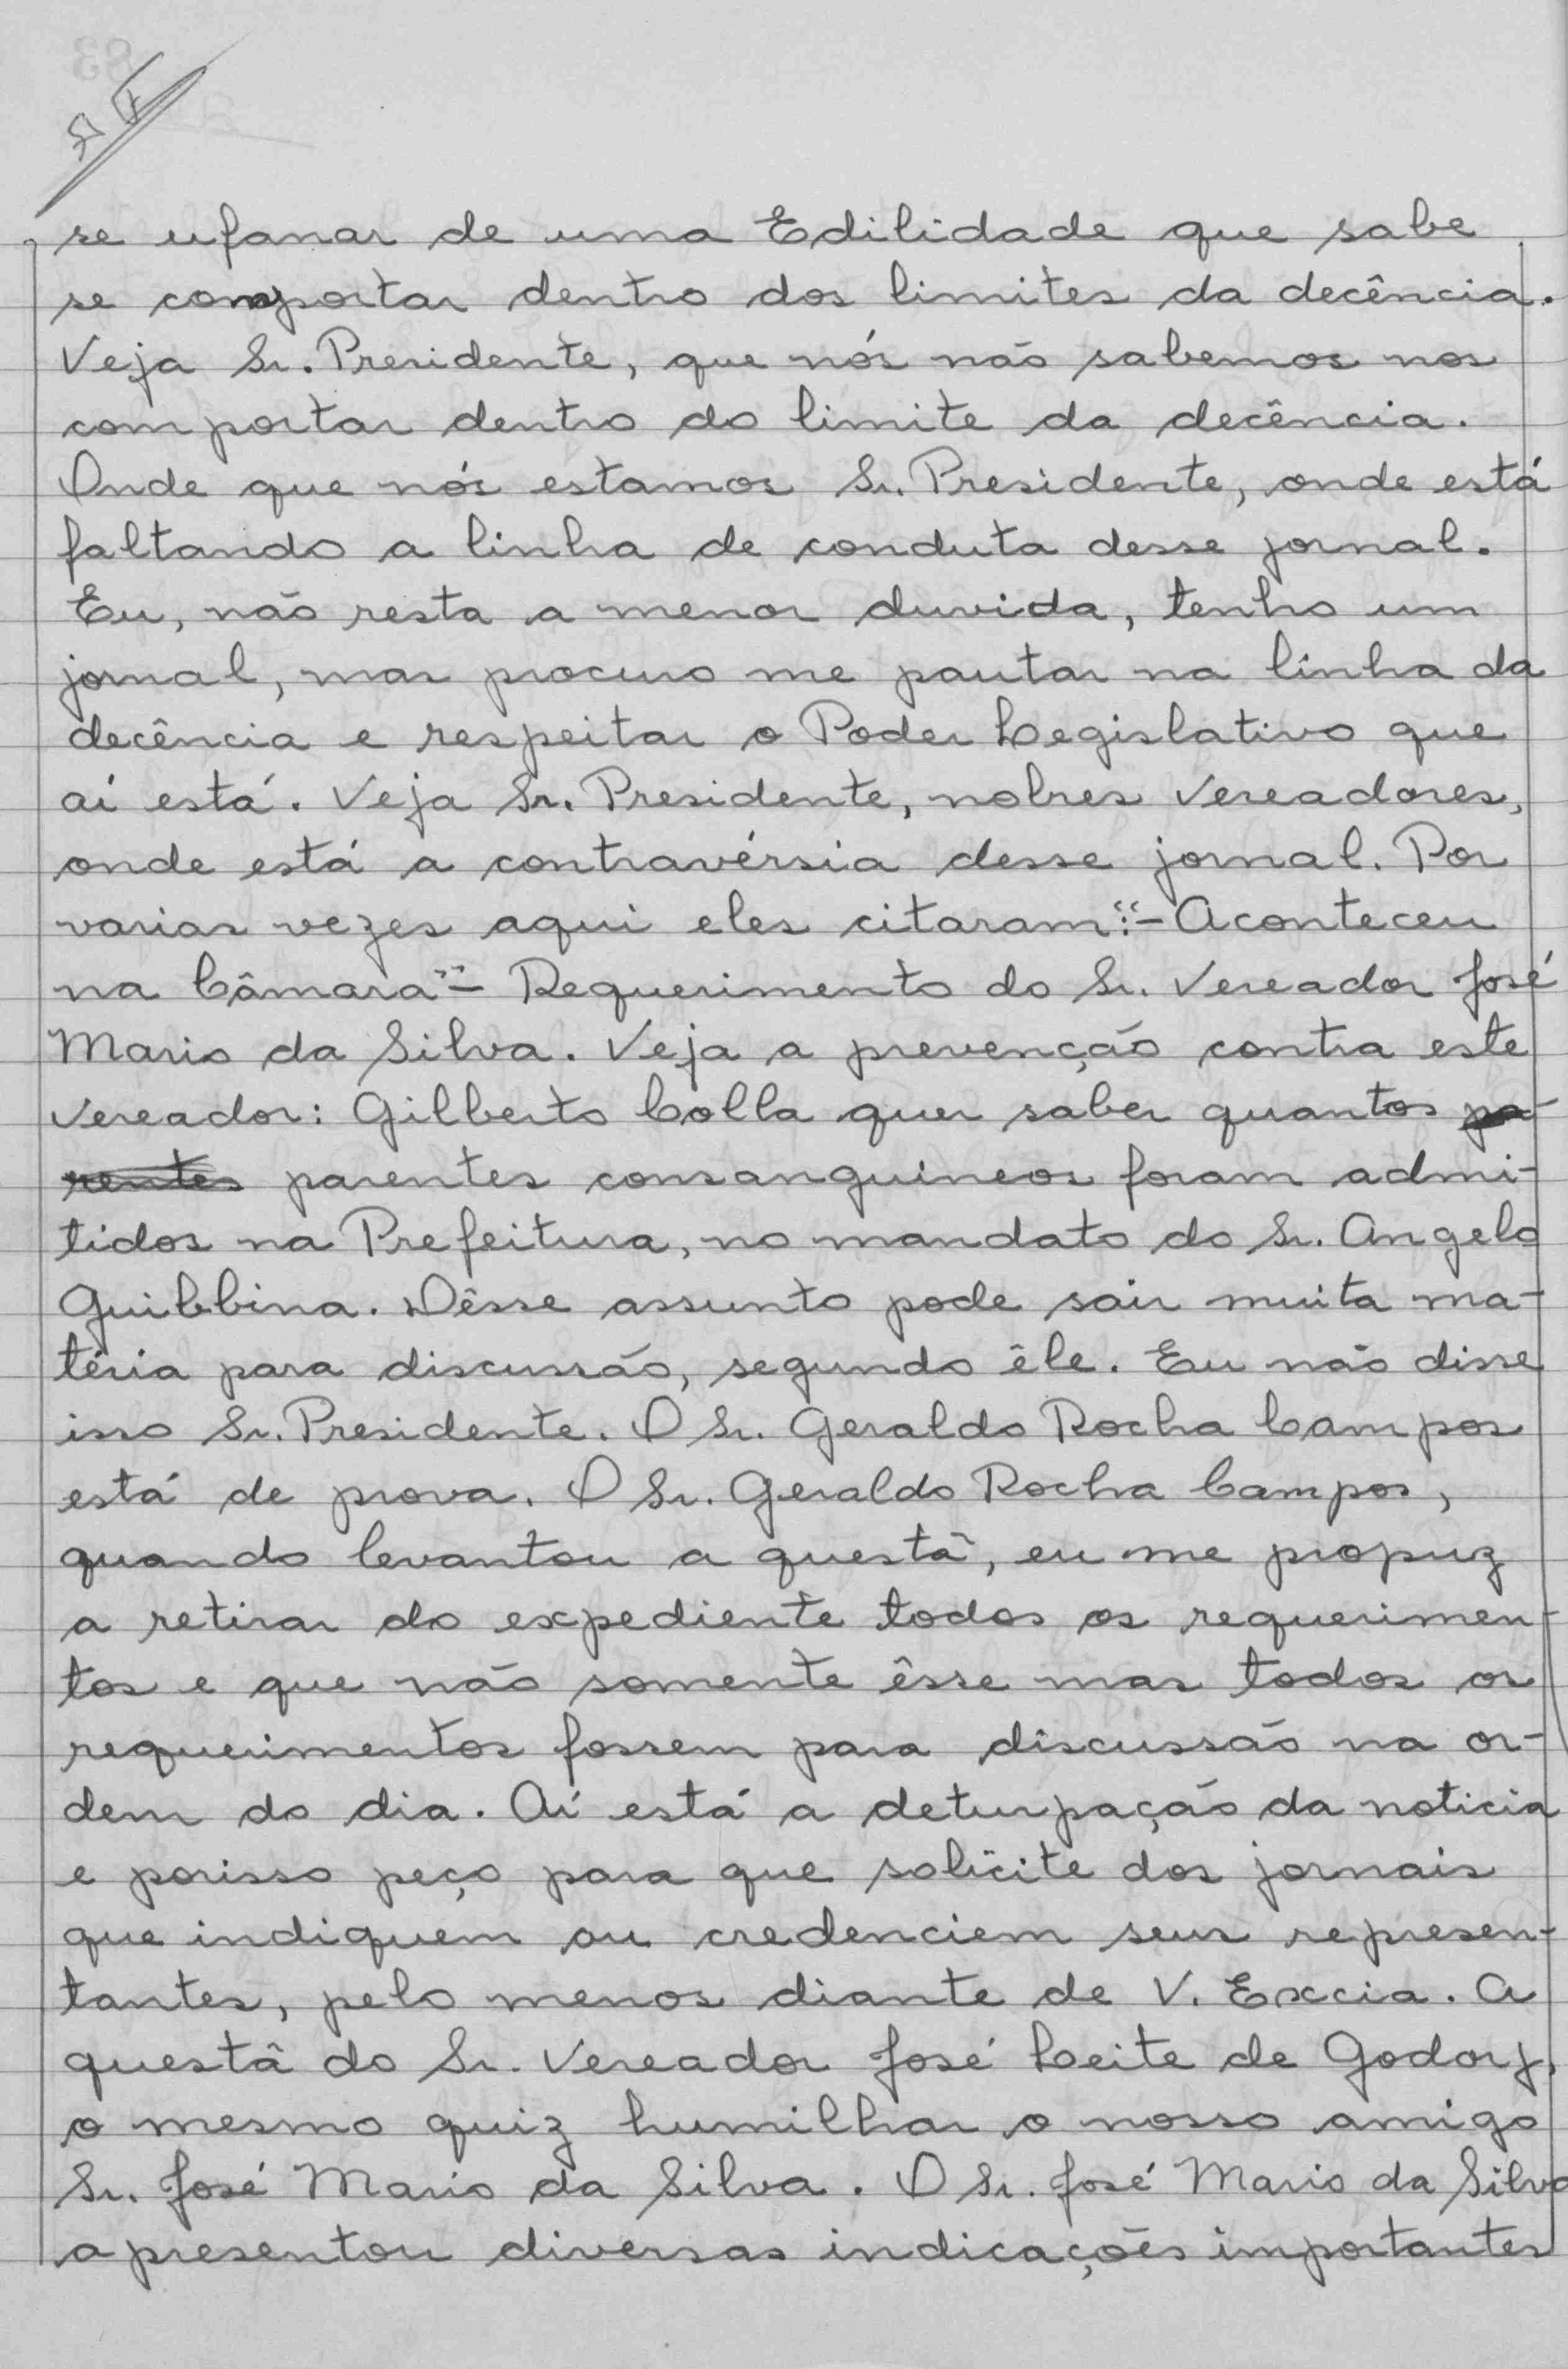 se ufanar de uma Edilidade que sabe
se comportar dentro dos limites da decência.
Veja Sr. Presidente, que nós não sabemos nos
comportar dentro do limite da decência.
Onde que nós estamos Sr. Presidente, onde está
faltando a linha de conduta desse jornal.
Eu, não resta a menor duvida, tenho um
jornal, mas procuro me pautar na linha da
decência e respeitar o Poder Legislativo que
aí está. Veja Sr. Presidente, nobres Vereadores,
onde está a contravérsia desse jornal. Por
varias vezes aqui eles citaram:"- Aconteceu
na Câmara"- Requerimento do Sr. Vereador José
Mario da Silva. Veja a prevenção contra este
vereador: Gilberto Colla quer saber quantos pa-
rentes parentes consanguineos foram admi-
tidos na Prefeitura, no mandato do Sr. Angelo
Guibbina. Dêsse assunto pode sair muita ma-
téria para discussão, segundo êle. Eu não disse
isso Sr. Presidente. O Sr. Geraldo Rocha Campos
está de prova. O Sr. Geraldo Rocha Campos,
quando levantou a questã, eu me propuz
a retirar do expediente todos os requerimen-
tos e que não somente êsse mas todos os
requerimentos fossem para discussão na or-
dem do dia. Aí está a deturpação da noticia
e porisso peço para que solicite dos jornais
que indiquem ou credenciem seus represen-
tantes, pelo menos diante de V. Excia. A
questã do Sr. Vereador José Leite de Godory,
o mesmo quiz humilhar o nosso amigo
Sr. José Mario da Silva. O Sr. José Mario da Silva
apresentou diversas indicações importantes